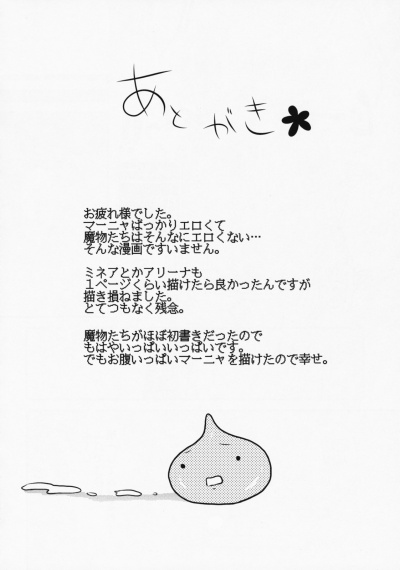 あとがき
お疲れ様でした。
マーニャばっかりエロくて
魔物たちはそんなにエロくない…
そんな漫画ですいません。
ミネアとかアリーナも
１ページくらい描けたら良かったんですが
描き損ねました。
とてつもなく残念。
魔物たちがほぼ初書きだったので
もはやいっぱいいっぱいです。
でもお腹いっぱいマーニャを描けたので幸せ。